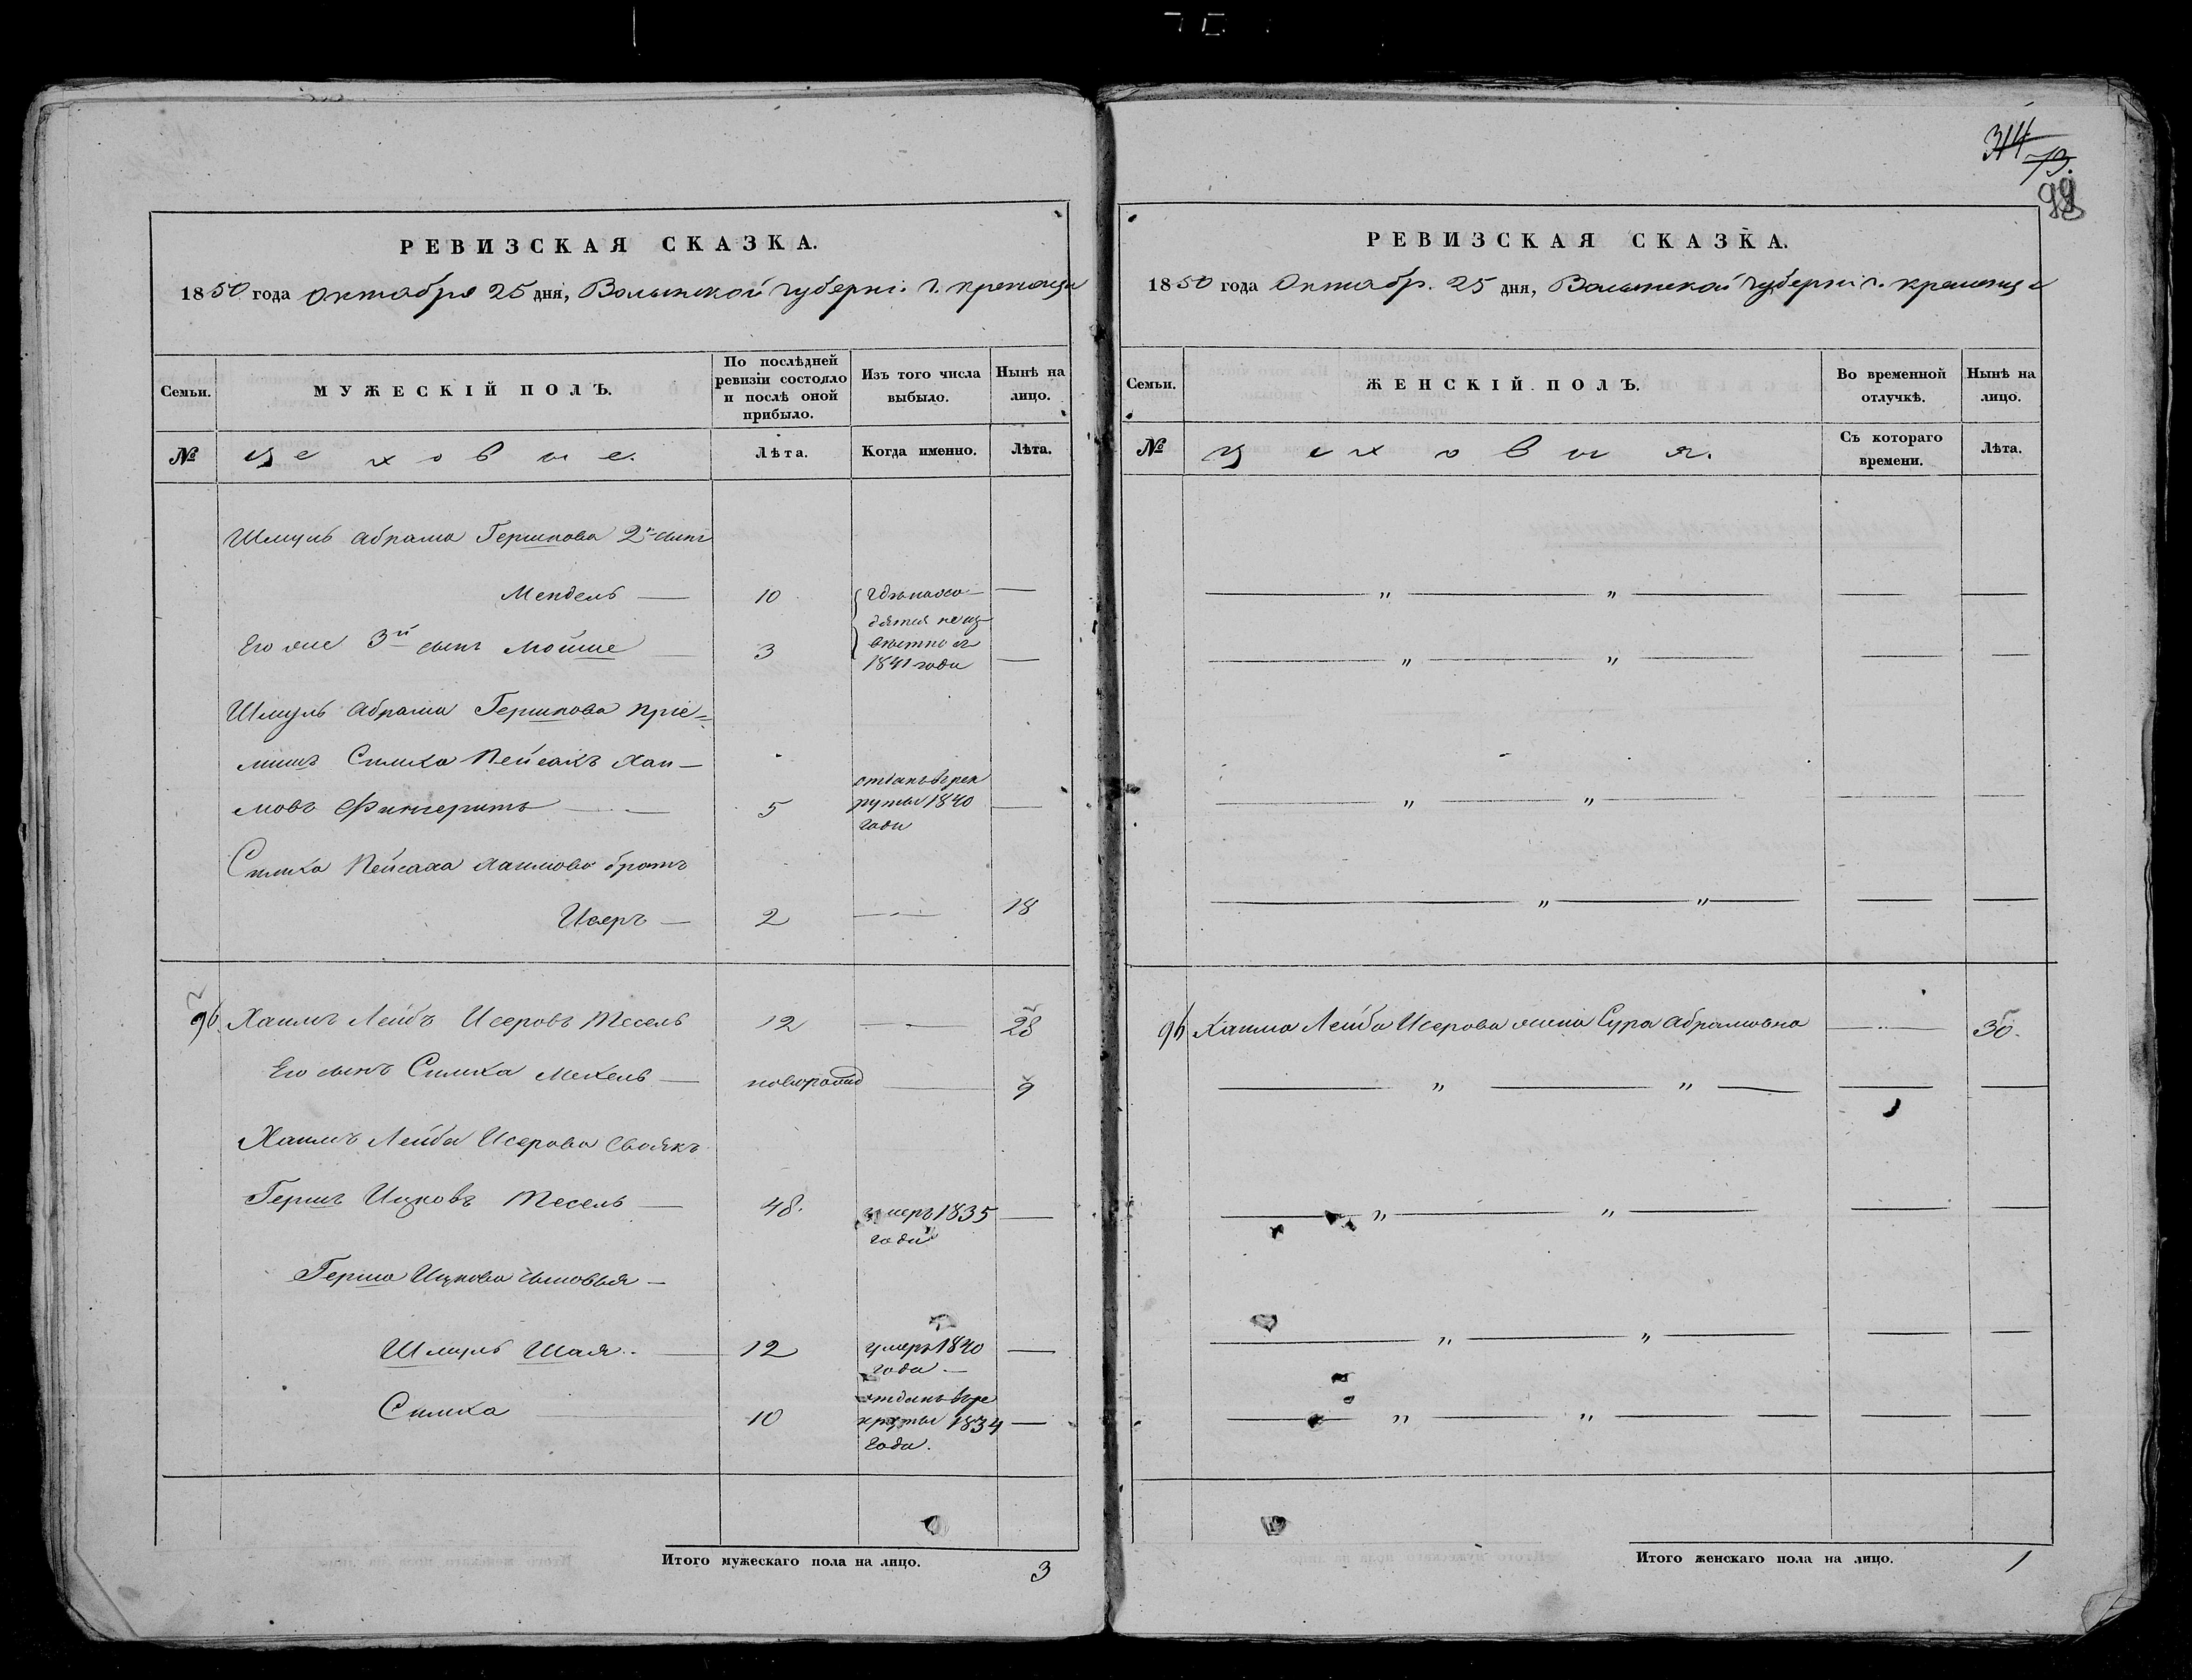 314
73.
99
РЕВИЗСКАЯ СКАЗКА.
1850 года Октября 25 дня, Волынской губерніи г. Кременца
Семьи.
МУЖЕСКІЙ ПОЛЪ.
По послѣдней ревизіи состояло и послѣ оной прибыло.
Изъ того числа выбыло.
Нынѣ на лицо.
№
Цеховые.
Лѣта.
Когда именно.
Лѣта.
Шмуль Абрама Гершкова 2й сынъ
Мендель — 10 —
Его же 3й сынъ Мойше — 3 —
гдѣ нахо-
дятся неиз-
вѣстно съ
1841 года
Шмуль Абрама Гершкова пріе=
мишъ Симха Пейсахъ Хаи—
мовъ Фингеритъ — 5 —
отданъ в рек
руты 1840
года
Симха Пейсаха Хаимова братъ
Исеръ — 2 — 18
96 Хаимъ Лейбъ Исеровъ Тесель 12 — 28
Его сынъ Симха Мехель — новорожд — 9
Хаимъ Лейба Исерова своякъ
Гершъ Ицковъ Тесель — 48. умеръ 1835 —
года
Герша Ицкова сыновья —
Шмуль Шая. — 12 умеръ 1840 —
года —
Симха — 10 отданъ в ре
круты 1834 —
года.
Итого мужескаго пола на лицо. 3
РЕВИЗСКАЯ СКАЗКА.
1850 года Октябр. 25 дня, Волынской губерніи г. Кременца
Семьи.
ЖЕНСКІЙ ПОЛЪ.
Во временной отлучкѣ.
Нынѣ на лицо.
№
Цеховыя.
Съ котораго времени.
Лѣта.
96 Хаима Лейба Исерова жена Сура Абрамовна — 30.
Итого женскаго пола на лицо. 1